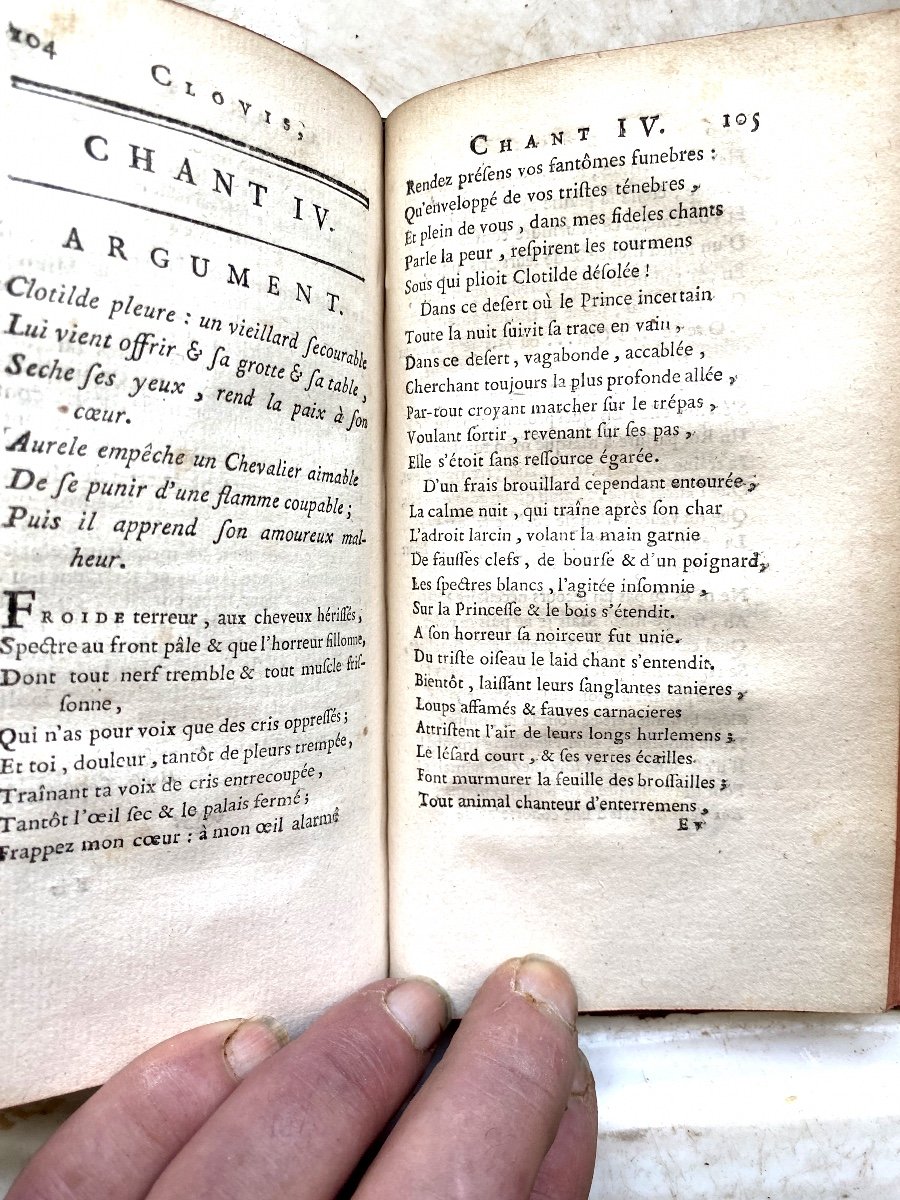 104
CLOVIS,
CHANT IV.
ARGUMENT.
Clotilde pleure : un vieillard ſecourable
Lui vient offrir & ſa grotte & ſa table,
Seche ſes yeux, rend la paix à ſon
cœur.
Aurele empêche un Chevalier aimable
De ſe punir d'une flamme coupable ;
Puis il apprend ſon amoureux mal-
heur.
FROIDE terreur, aux cheveux hériſſés,
Spectre au front pâle & que l'horreur ſillonne,
Dont tout nerf tremble & tout muſcle friſ-
ſonne,
Qui n'as pour voix que des cris oppreſſés ;
Et toi, douleur, tantôt de pleurs trempée,
Traînant ta voix de cris entrecoupée,
Tantôt l'œil ſec & le palais fermé ;
Frappez mon cœur : à mon œil alarmé
CHANT IV. 105
Rendez préſens vos fantômes funebres :
Qu'enveloppé de vos triſtes ténebres,
Et plein de vous, dans mes fideles chants
Parle la peur, reſpirent les tourmens
Sous qui plioit Clotilde déſolée !
Dans ce deſert où le Prince incertain
Toute la nuit ſuivit ſa trace en vain,
Dans ce deſert, vagabonde, accablée,
Cherchant toujours la plus profonde allée,
Par-tout croyant marcher ſur le trépas,
Voulant ſortir, revenant ſur ſes pas,
Elle s'étoit ſans reſſource égarée.
D'un frais brouillard cependant entourée,
La calme nuit, qui traîne après ſon char
L'adroit larcin, volant la main garnie
De fauſſes clefs, de bourſe & d'un poignard,
Les ſpectres blancs, l'agitée inſomnie,
Sur la Princeſſe & le bois s'étendit.
A ſon horreur ſa noirceur fut unie.
Du triſte oiſeau le laid chant s'entendit.
Bientôt, laiſſant leurs ſanglantes tanieres,
Loups affamés & fauves carnacieres
Attriſtent l'air de leurs longs hurlemens ;
Le léſard court, & ſes vertes écailles
Font murmurer la feuille des broſſailles ;
Tout animal chanteur d'enterremens,
E v